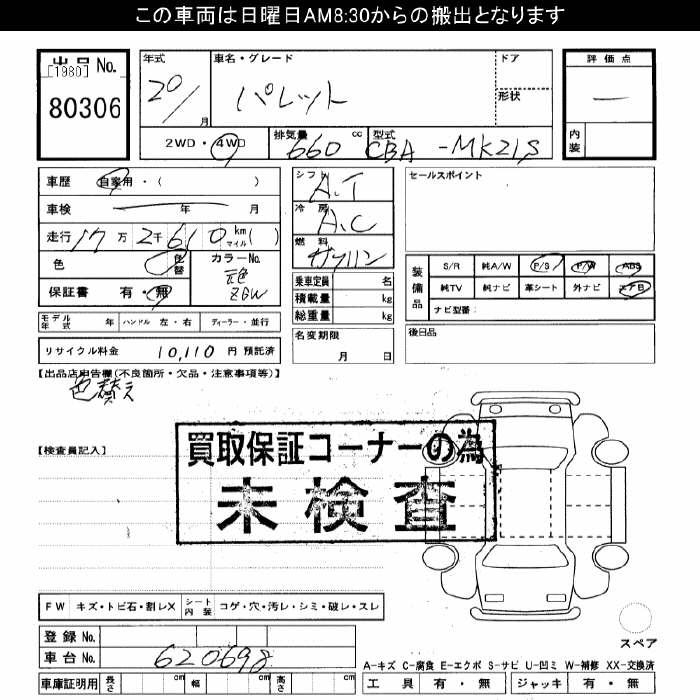 この車両は日曜日AM8:30からの搬出となります
出品 No.
[1980]
80306
年式 20/ 月
車名・グレード パレット
ドア
形状
評価点 —
内装
2WD・4WD
排気量 660 cc
型式 CBA-MK21S
車歴 自家用・( )
車検 年 月
走行 17万 2千 610 km マイル ( )
色 色替
カラーNo. 元色 ZGW
保証書 有・無
シフト A.T
冷房 A.C
燃料 ガソリン
乗車定員 名
積載量 kg
総重量 kg
セールスポイント
装備品
S/R 純A/W P/S P/W ABS
純TV 純ナビ 革シート 外ナビ エアB
ナビ型番:
モデル年式 年 ハンドル 左・右 ディーラー・並行
名変期限 月 日
後日品
リサイクル料金 10,110 円 預託済
【出品店申告欄(不良箇所・欠品・注意事項等)】
色替え
買取保証コーナーの為
未検査
【検査員記入】
FW キズ・トビ石・割レX シート内装 コゲ・穴・汚レ・シミ・破レ・スレ
登録 No.
車台 No. 620698
車庫証明用 長さ cm 幅 cm 高さ cm
スペア
A-キズ C-腐食 E-エクボ S-サビ U-凹ミ W-補修 XX-交換済
工具 有・無 ジャッキ 有・無